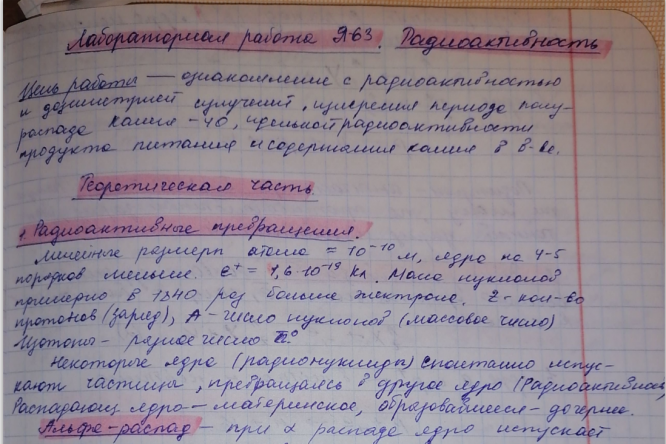 Лабораторная работа Я-63. Радиоактивность
Цель работы — ознакомление с радиоактивностью
и дозиметрией излучений, измерения периода полу-
распада калия-40, удельной радиоактивности
продукта питания и содержания калия в в-ве.
Теоретическая часть
1. Радиоактивные превращения.
Линейные размеры атома = 10⁻¹⁰ м, ядра на 4-5
порядков меньше. e⁺ = 1,6·10⁻¹⁹ Кл. Масса нуклонов
примерно в 1840 раз больше электрона. Z - кол-во
протонов (заряд), A - число нуклонов (массовое число)
Изотопы - разное число n⁰
Некоторые ядра (радионуклиды) спонтанно испус-
кают частицы, превращаясь в другое ядро (Радиоактивнос
Распадающ ядро — материнское, образовавшееся - дочернее.
Альфа-распад — при α распаде ядро испускает